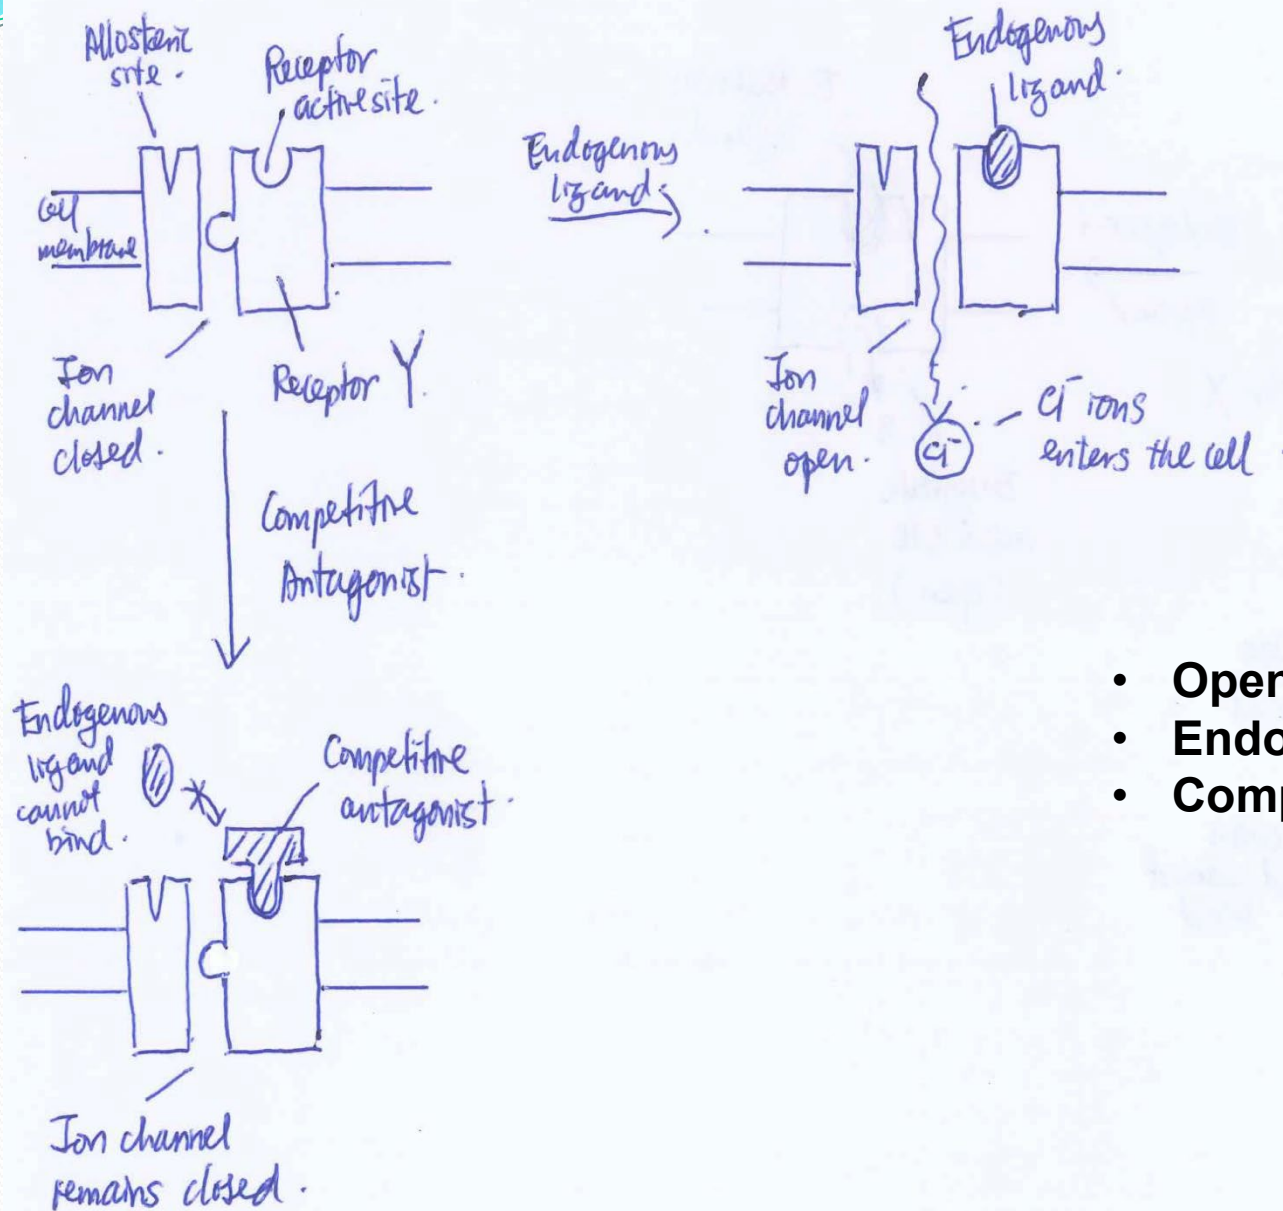 Allosteric
site.
Receptor
active site.
Cell
membrane
Ion
channel
closed.
Receptor Y.
Endogenous
ligand.
Endogenous
ligand.
Ion
channel
open.
Cl⁻
Cl⁻ ions
enters the cell
Competitive
Antagonist.
Endogenous
ligand
cannot
bind.
Competitive
antagonist.
Ion channel
remains closed.
• Open
• Endo
• Comp